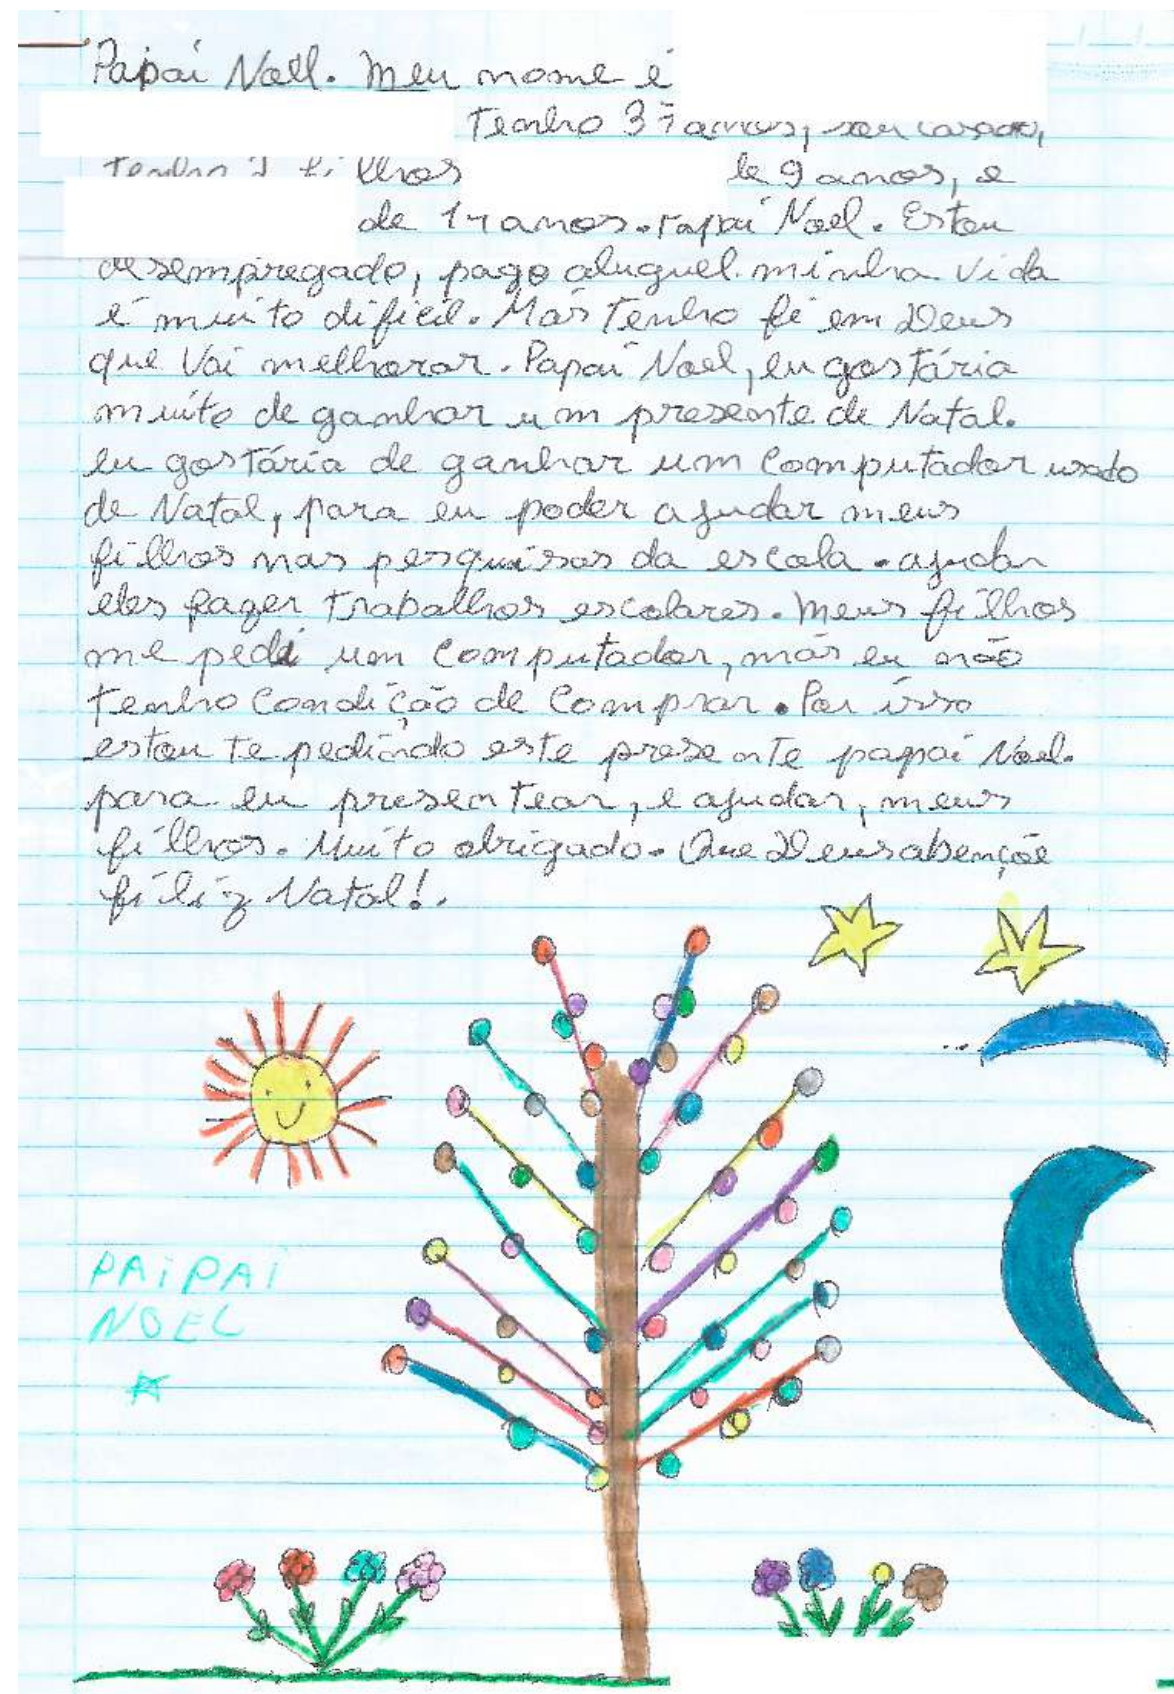 Papai Noel. Meu nome é
Tenho 37 anos, sou casado,
Tenho 2 filhos de 9 anos, e
de 14 anos. Papai Noel. Estou
desempregado, pago aluguel. minha vida
é muito dificil. Mas Tenho fé em Deus
que Vai melhorar. Papai Noel, eu gostária
muito de ganhar um presente de Natal.
eu gostária de ganhar um computador usado
de Natal, para eu poder ajudar meus
filhos nas pesquisas da escola. ajudar
eles fazer trabalhos escolares. Meus filhos
me pedi um computador, mas eu não
tenho condição de comprar. Por isso
estou te pedindo este presente papai Noel.
para eu presentear, e ajudar, meus
filhos. Muito obrigado. Que Deus abençõe
filiz Natal!.
PAiPAi
NOEL